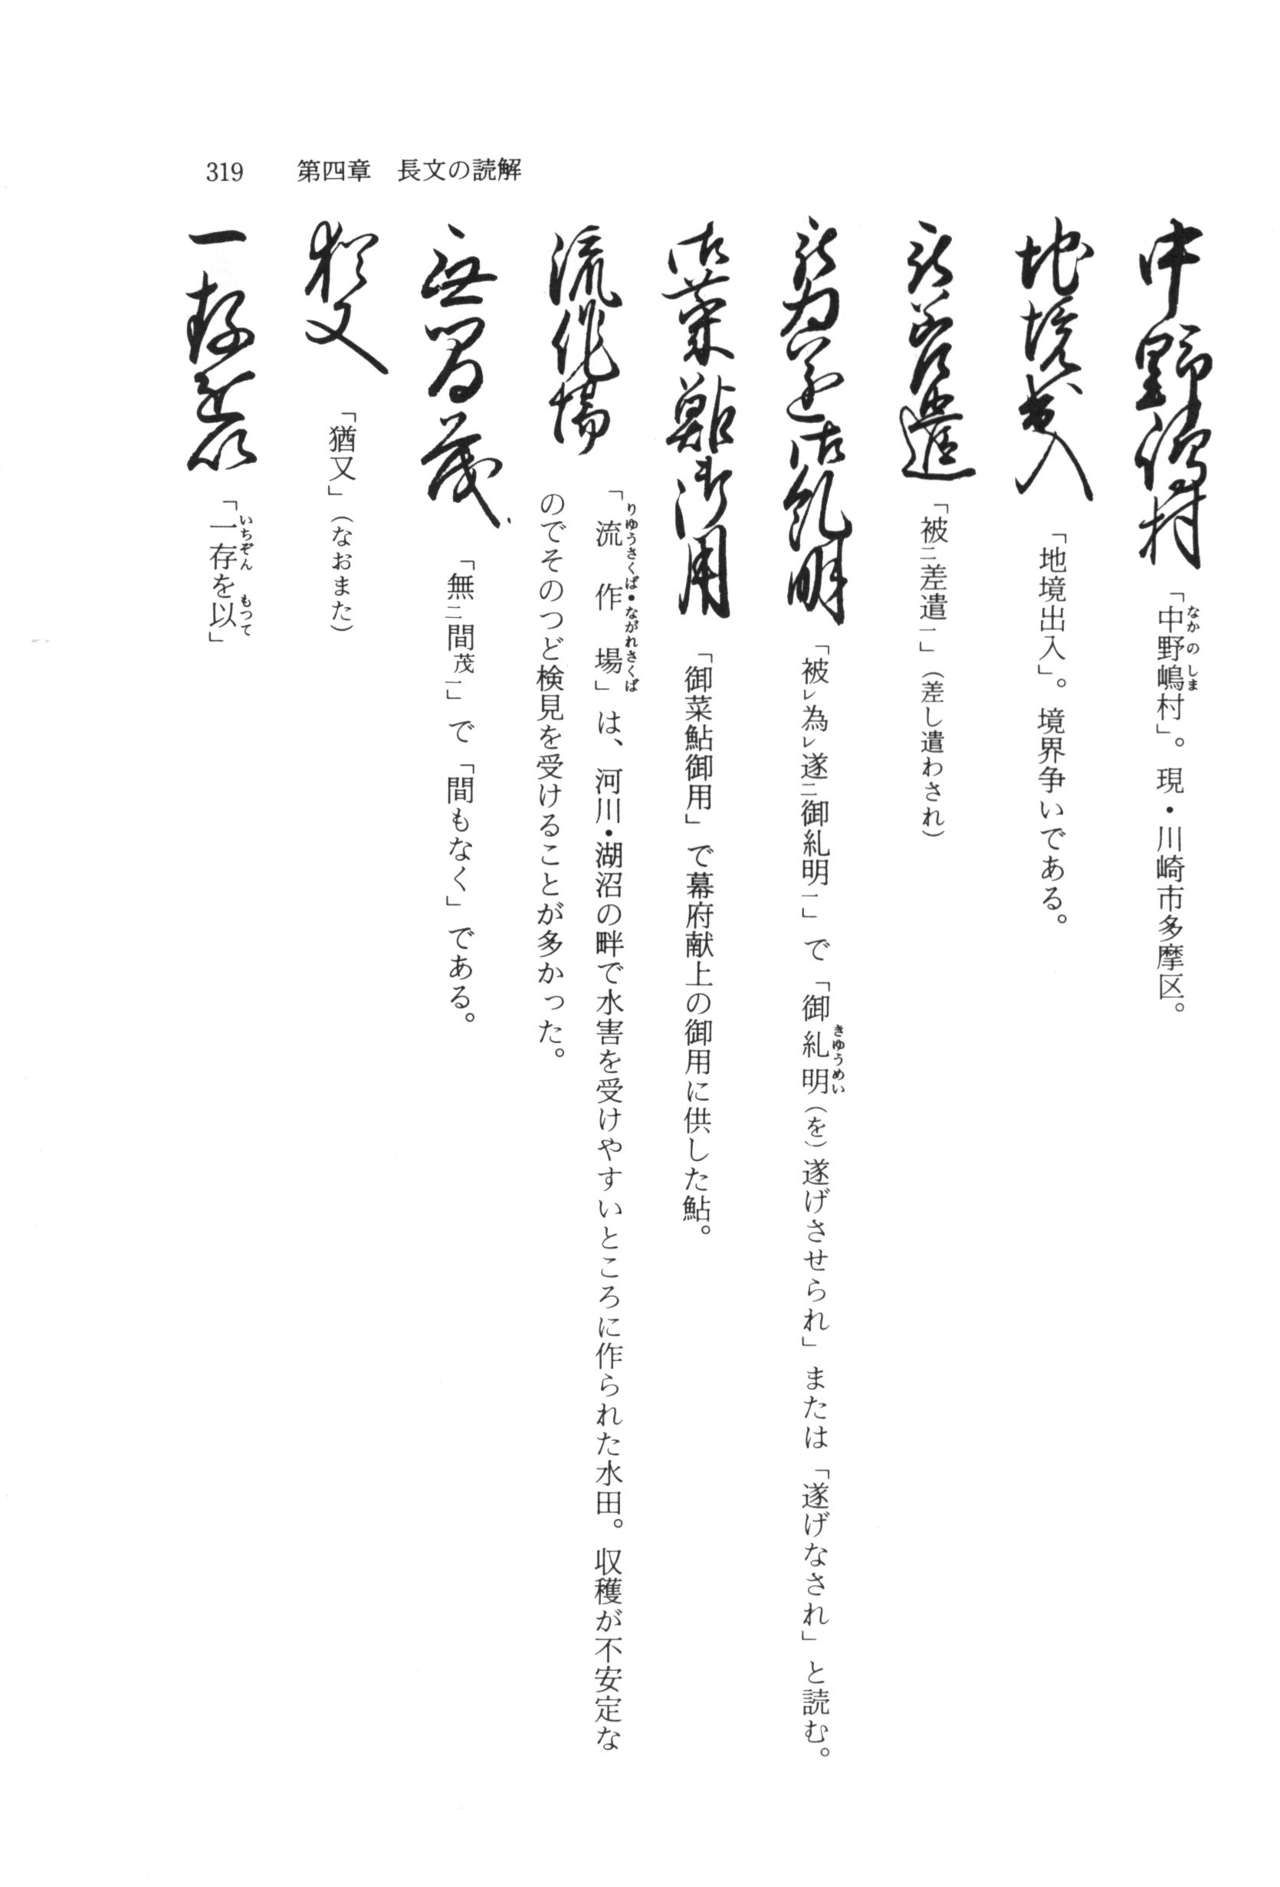 319　第四章　長文の読解
中野嶋村　「中野嶋村」。現・川崎市多摩区。
なか の しま
地境出入　「地境出入」。境界争いである。
被差遣　「被㆓差遣㆒」（差し遣わされ）
被為遂御糺明　「被㆑為㆑遂㆓御糺明㆒」で「御糺明（を）遂げさせられ」または「遂げなされ」と読む。
きゆうめい
御菜鮎御用　「御菜鮎御用」で幕府献上の御用に供した鮎。
流作場　「流作場」は、河川・湖沼の畔で水害を受けやすいところに作られた水田。収穫が不安定な
りゆうさくば・ながれさくば
のでそのつど検見を受けることが多かった。
無間茂　「無㆓間茂㆒」で「間もなく」である。
猶又　「猶又」（なおまた）
一存を以　「一存を以」
いちぞん　もつて